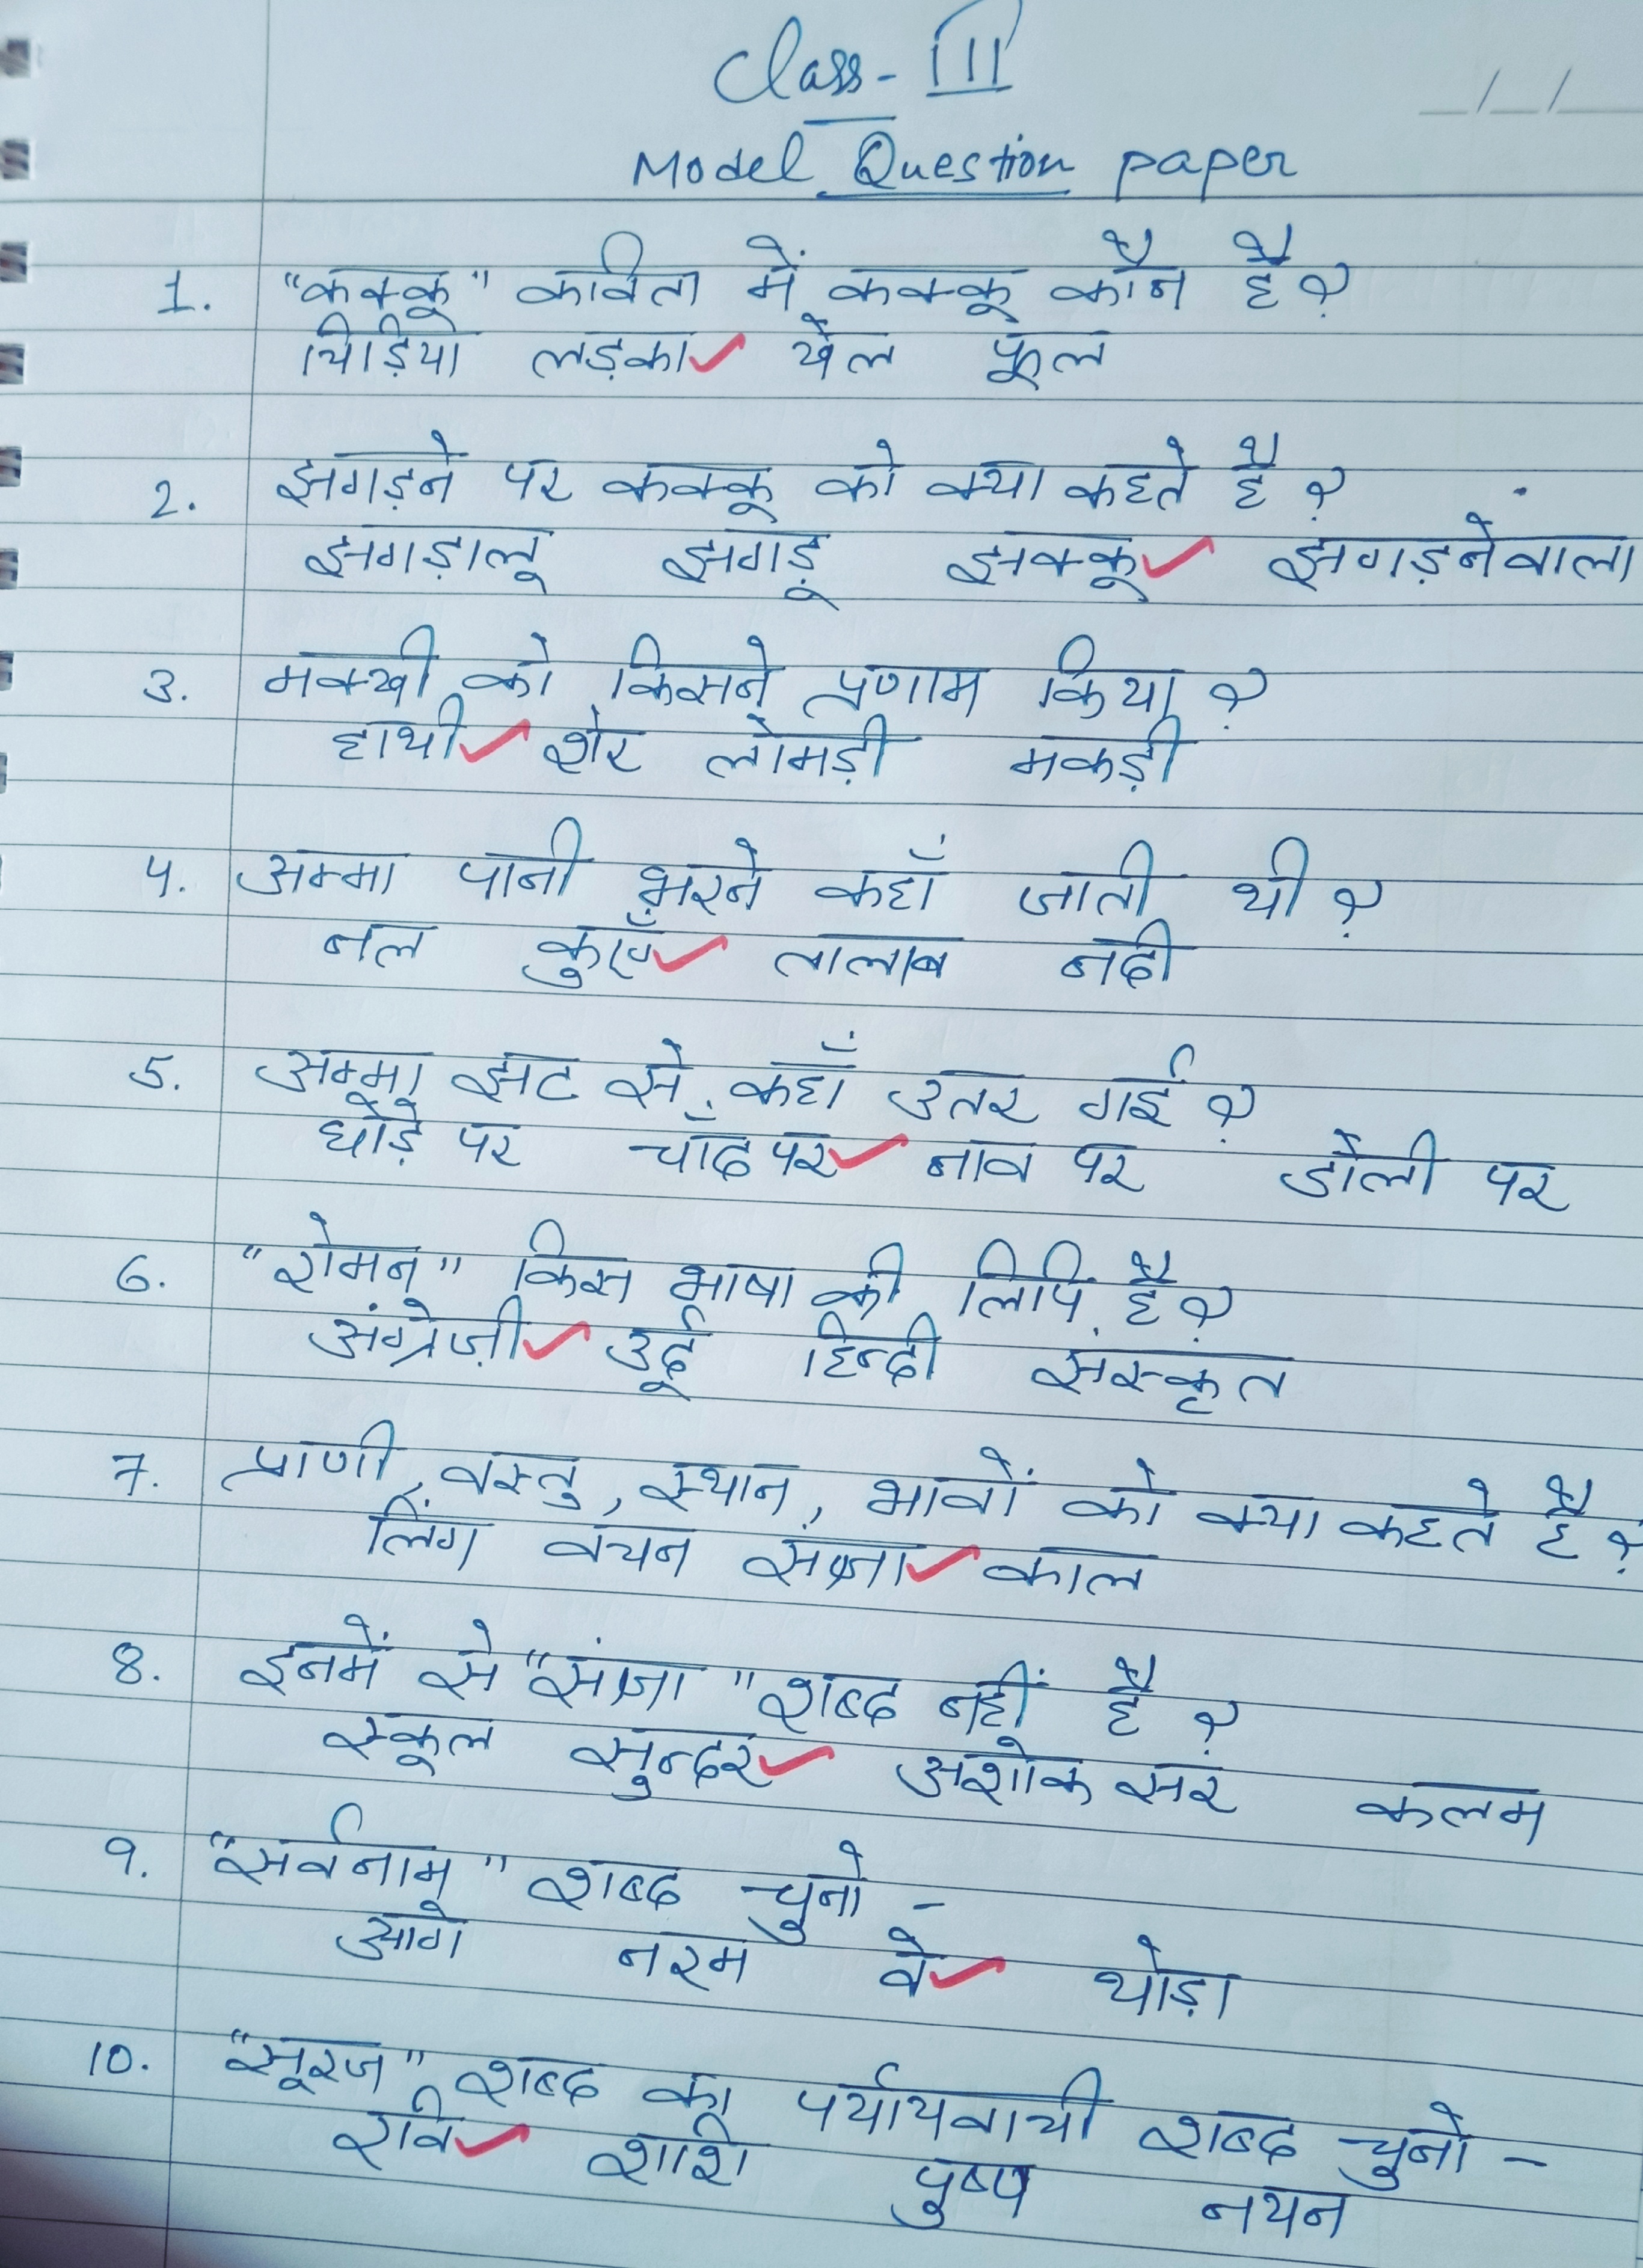 Class - III
Model Question paper
1. "कक्कू" कविता में कक्कू कौन है?
चिड़िया लड़का✓ खेल फूल
2. झगड़ने पर कक्कू को क्या कहते है?
झगड़ालू झगड़ू झक्कू✓ झगड़नेवाला
3. मक्खी को किसने प्रणाम किया?
हाथी✓ शेर लोमड़ी मकड़ी
4. अम्मा पानी भरने कहाँ जाती थी?
नल कुएँ✓ तालाब नदी
5. अम्मा झट से कहाँ उतर गई?
घोड़े पर चाँद पर✓ नाव पर डोली पर
6. "रोमन" किस भाषा की लिपि है?
अंग्रेज़ी✓ उर्दू हिन्दी संस्कृत
7. प्राणी, वस्तु, स्थान, भावों को क्या कहते है?
लिंग वचन संज्ञा✓ काल
8. इनमें से "संज्ञा" शब्द नहीं है?
स्कूल सुन्दर✓ अशोक सर कलम
9. "सर्वनाम" शब्द चुनो -
आगे नरम वे✓ थोड़ा
10. "सूरज" शब्द का पर्यायवाची शब्द चुनो -
रवि✓ शशि पुष्प नयन